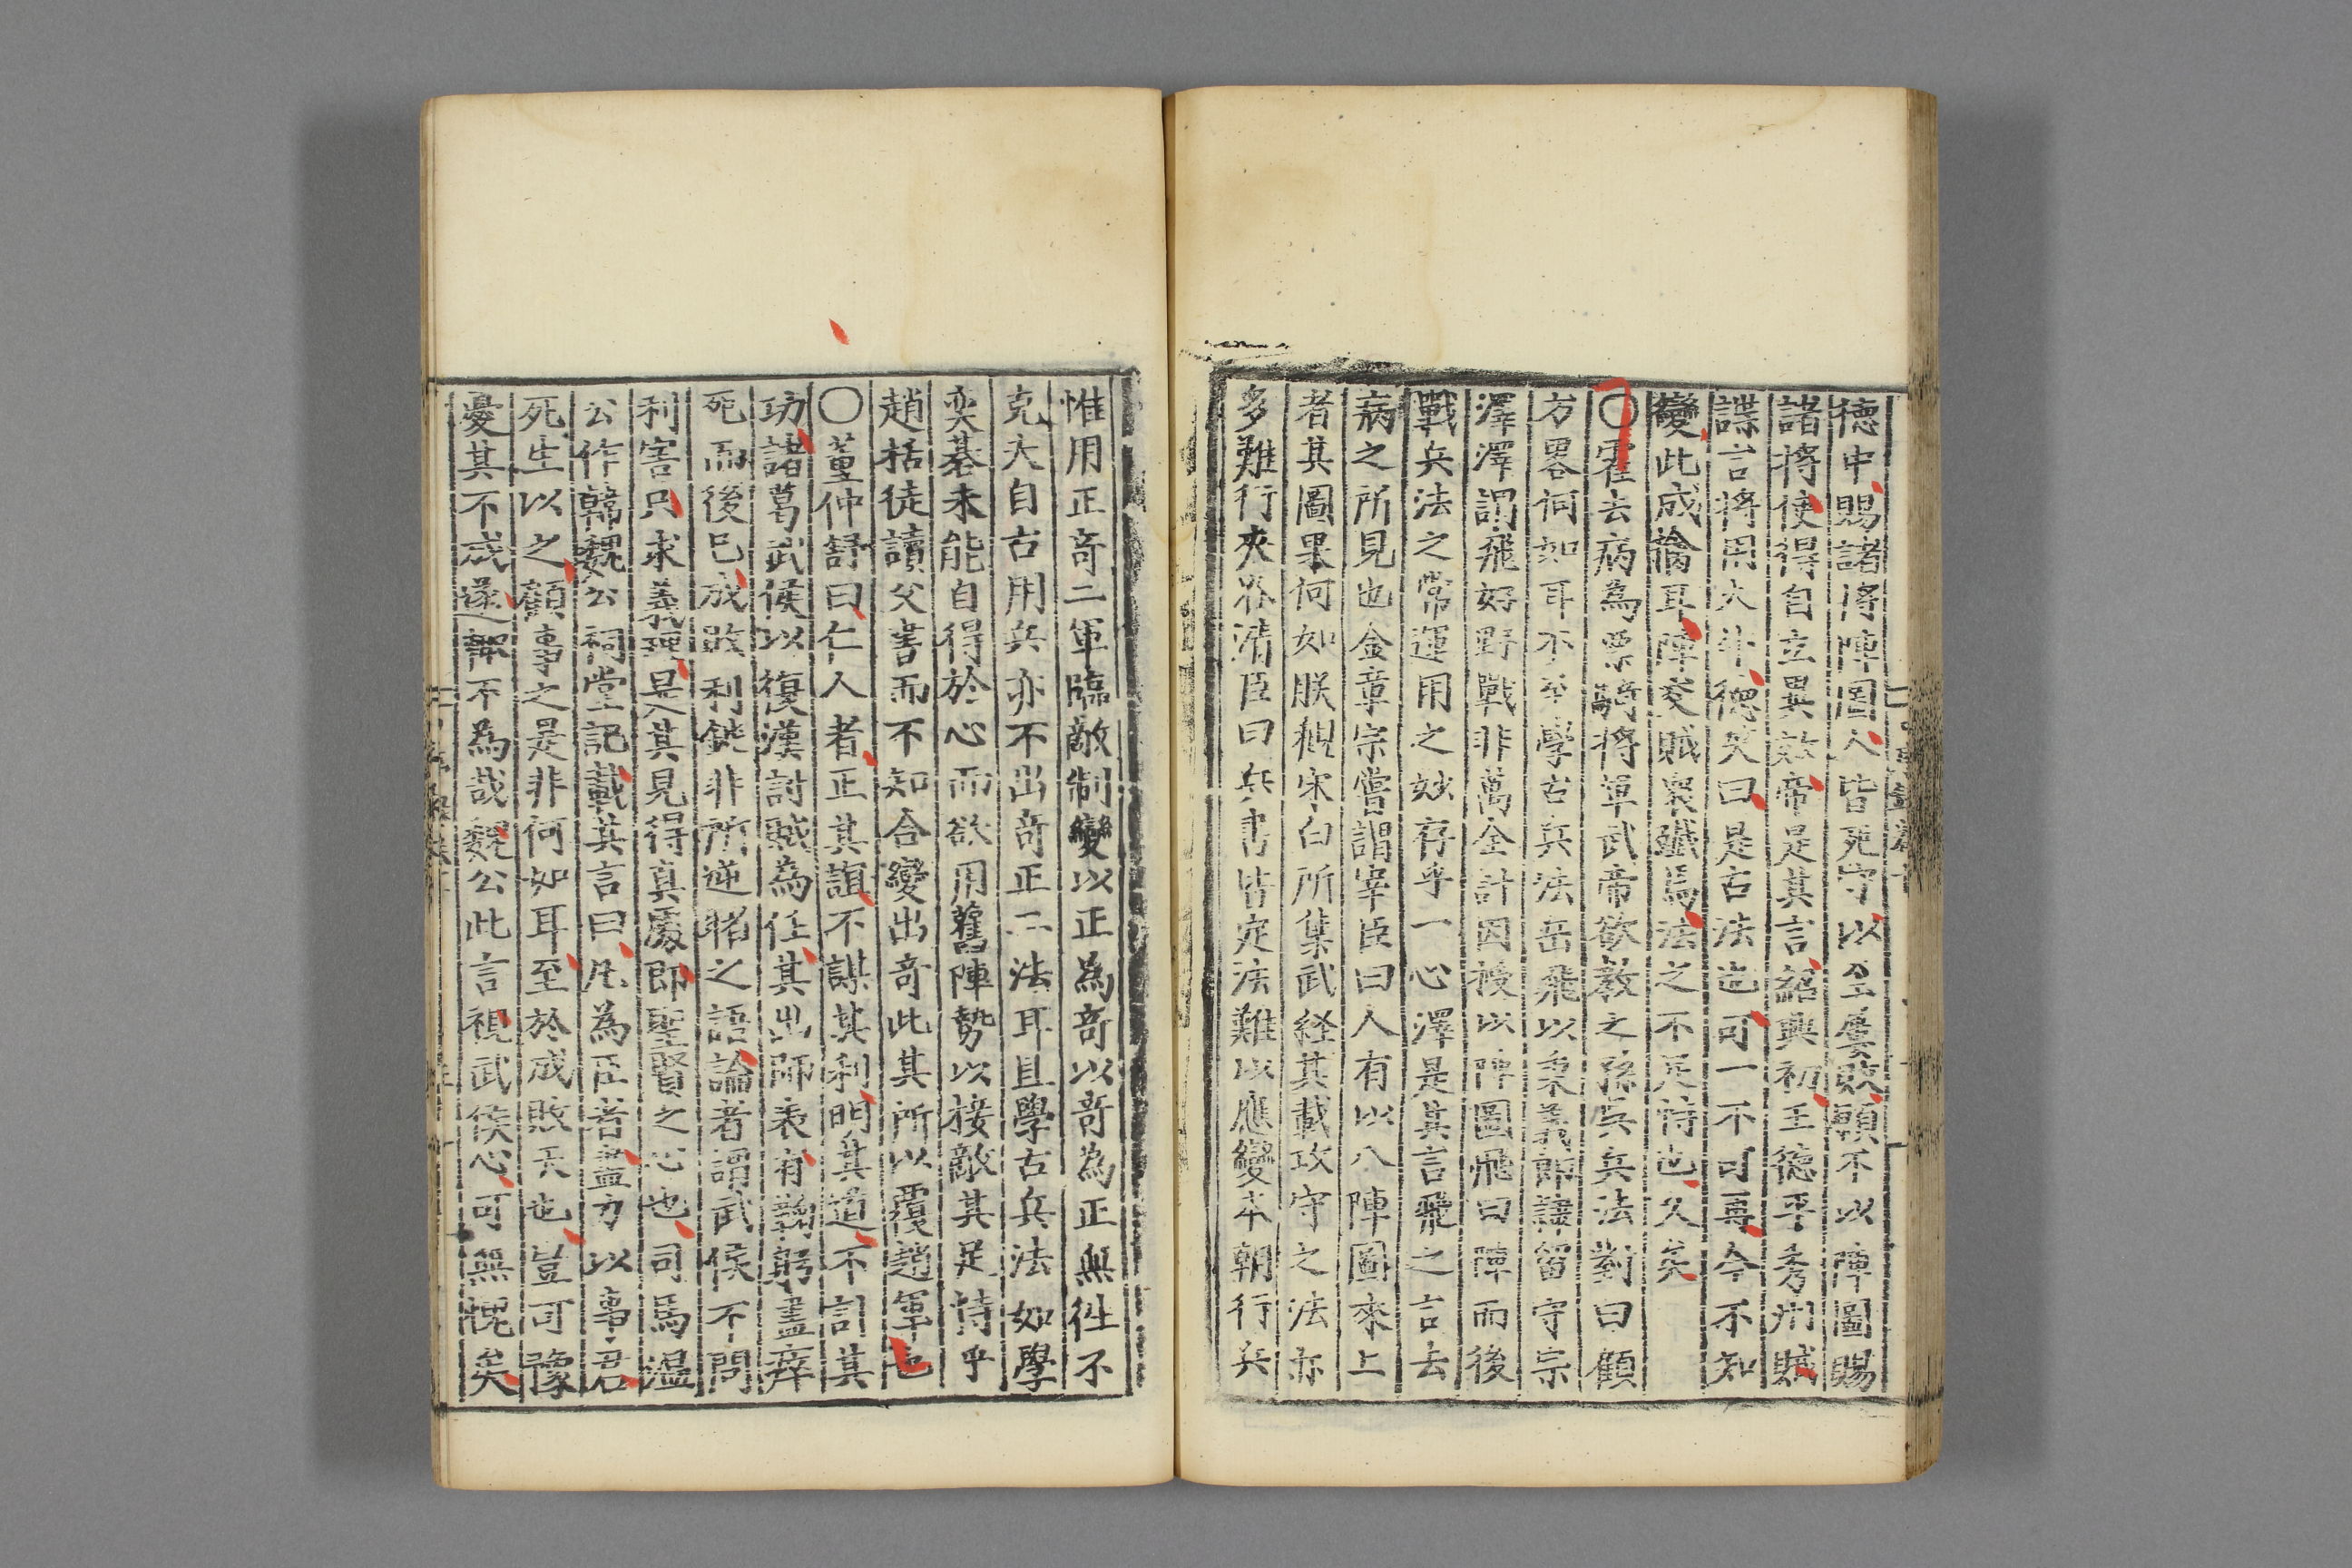 德中賜諸將陣圖人皆死守以至屢敗願不以陣圖賜
諸將使得自立異效帝是其言紹興初王德平秀州賊
諜言將用火牛德笑曰是古法也可一不可再今不知
變此成禽耳陣交賊衆殲焉法之不足恃也久矣
○霍去病為票騎將軍武帝欲教之孫吳兵法對曰顧
方畧何如耳不至學古兵法岳飛以秉義郎隷留守宗
澤澤謂飛好野戰非萬全計因授以陣圖飛曰陣而後
戰兵法之常運用之妙存乎一心澤是其言飛之言去
病之所見也金章宗嘗謂宰臣曰人有以八陣圖來上
者其圖果何如朕觀宋白所集武経其載攻守之法亦
多難行夾谷淸臣曰兵書皆定法難以應變本朝行兵
惟用正竒二軍臨敵制變以正為竒以竒為正無徃不
克大自古用兵亦不出竒正二法耳且學古兵法如學
奕棊未能自得於心而欲用舊陣勢以接敵其足恃乎
趙括徒讀父書而不知合變出竒此其所以覆趙軍也
○董仲舒曰仁人者正其誼不謀其利明其道不計其
功諸葛武侯以復漢討賊為任其出師表有鞠躬盡瘁
死而後已成敗利鈍非所逆睹之語論者謂武侯不問
利害只求義理是其見得真處即聖賢之心也司馬溫
公作韓魏公祠堂記載其言曰凡為臣者盡力以事君
死生以之顧事之是非何如耳至於成敗天也豈可豫
憂其不成遂輟不為哉魏公此言視武侯心可無愧矣